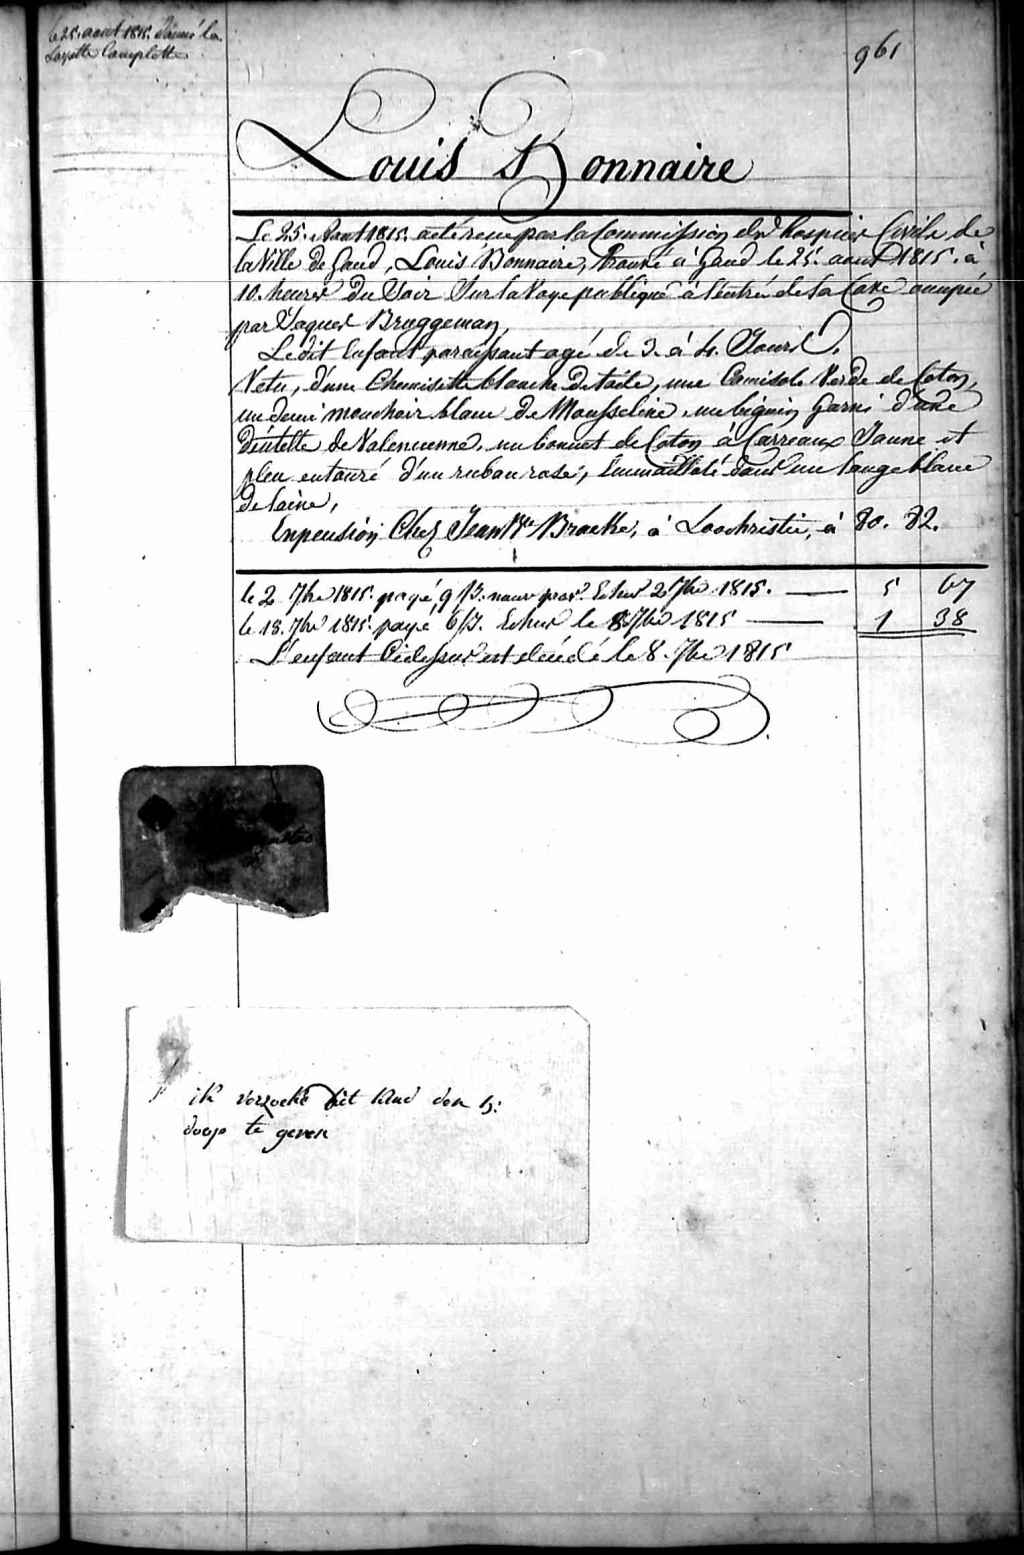 le 25. aout 1815. Donné la
Layette Complette
961
Louis Bonnaire
Le 25. Aout 1815. a été recu par la Commission des hospices Civils de
la Ville de Gand, Louis Bonnaire, trouvé à Gand le 25. aout 1815. à
10. heures du Soir Sur la Voye publique à l'entré de la Cave occupée
par Jaques Bruggeman,
Le dit Enfant paraissant agé de 3. à 4. Jours.
Vetu, d'une Chemisette blanche de toile, une Camisole Verde de Coton,
un demi mouchoir blanc de Mousseline, un beguin Garni d'une
Déntelle de Valencienne, un bonnet de Coton à Carreaux Jaune et
pleu entouré d'un ruban rose, Emmailloté dans un lange blanc
de laine,
En pension Chez Jean Bte Bracke, à Loochristie, à 80. 82.
le 2 7bre 1815. payé, 9 fs. nour pr Echus 2 7bre 1815. 5 67
le 18. 7bre 1815. payé, 6 fs. Echus le 8 7bre 1815 1 38
L'enfant Cidessus est décédé le 8. 7bre 1815
ik verzoeke dit kind den h:
doop te geven